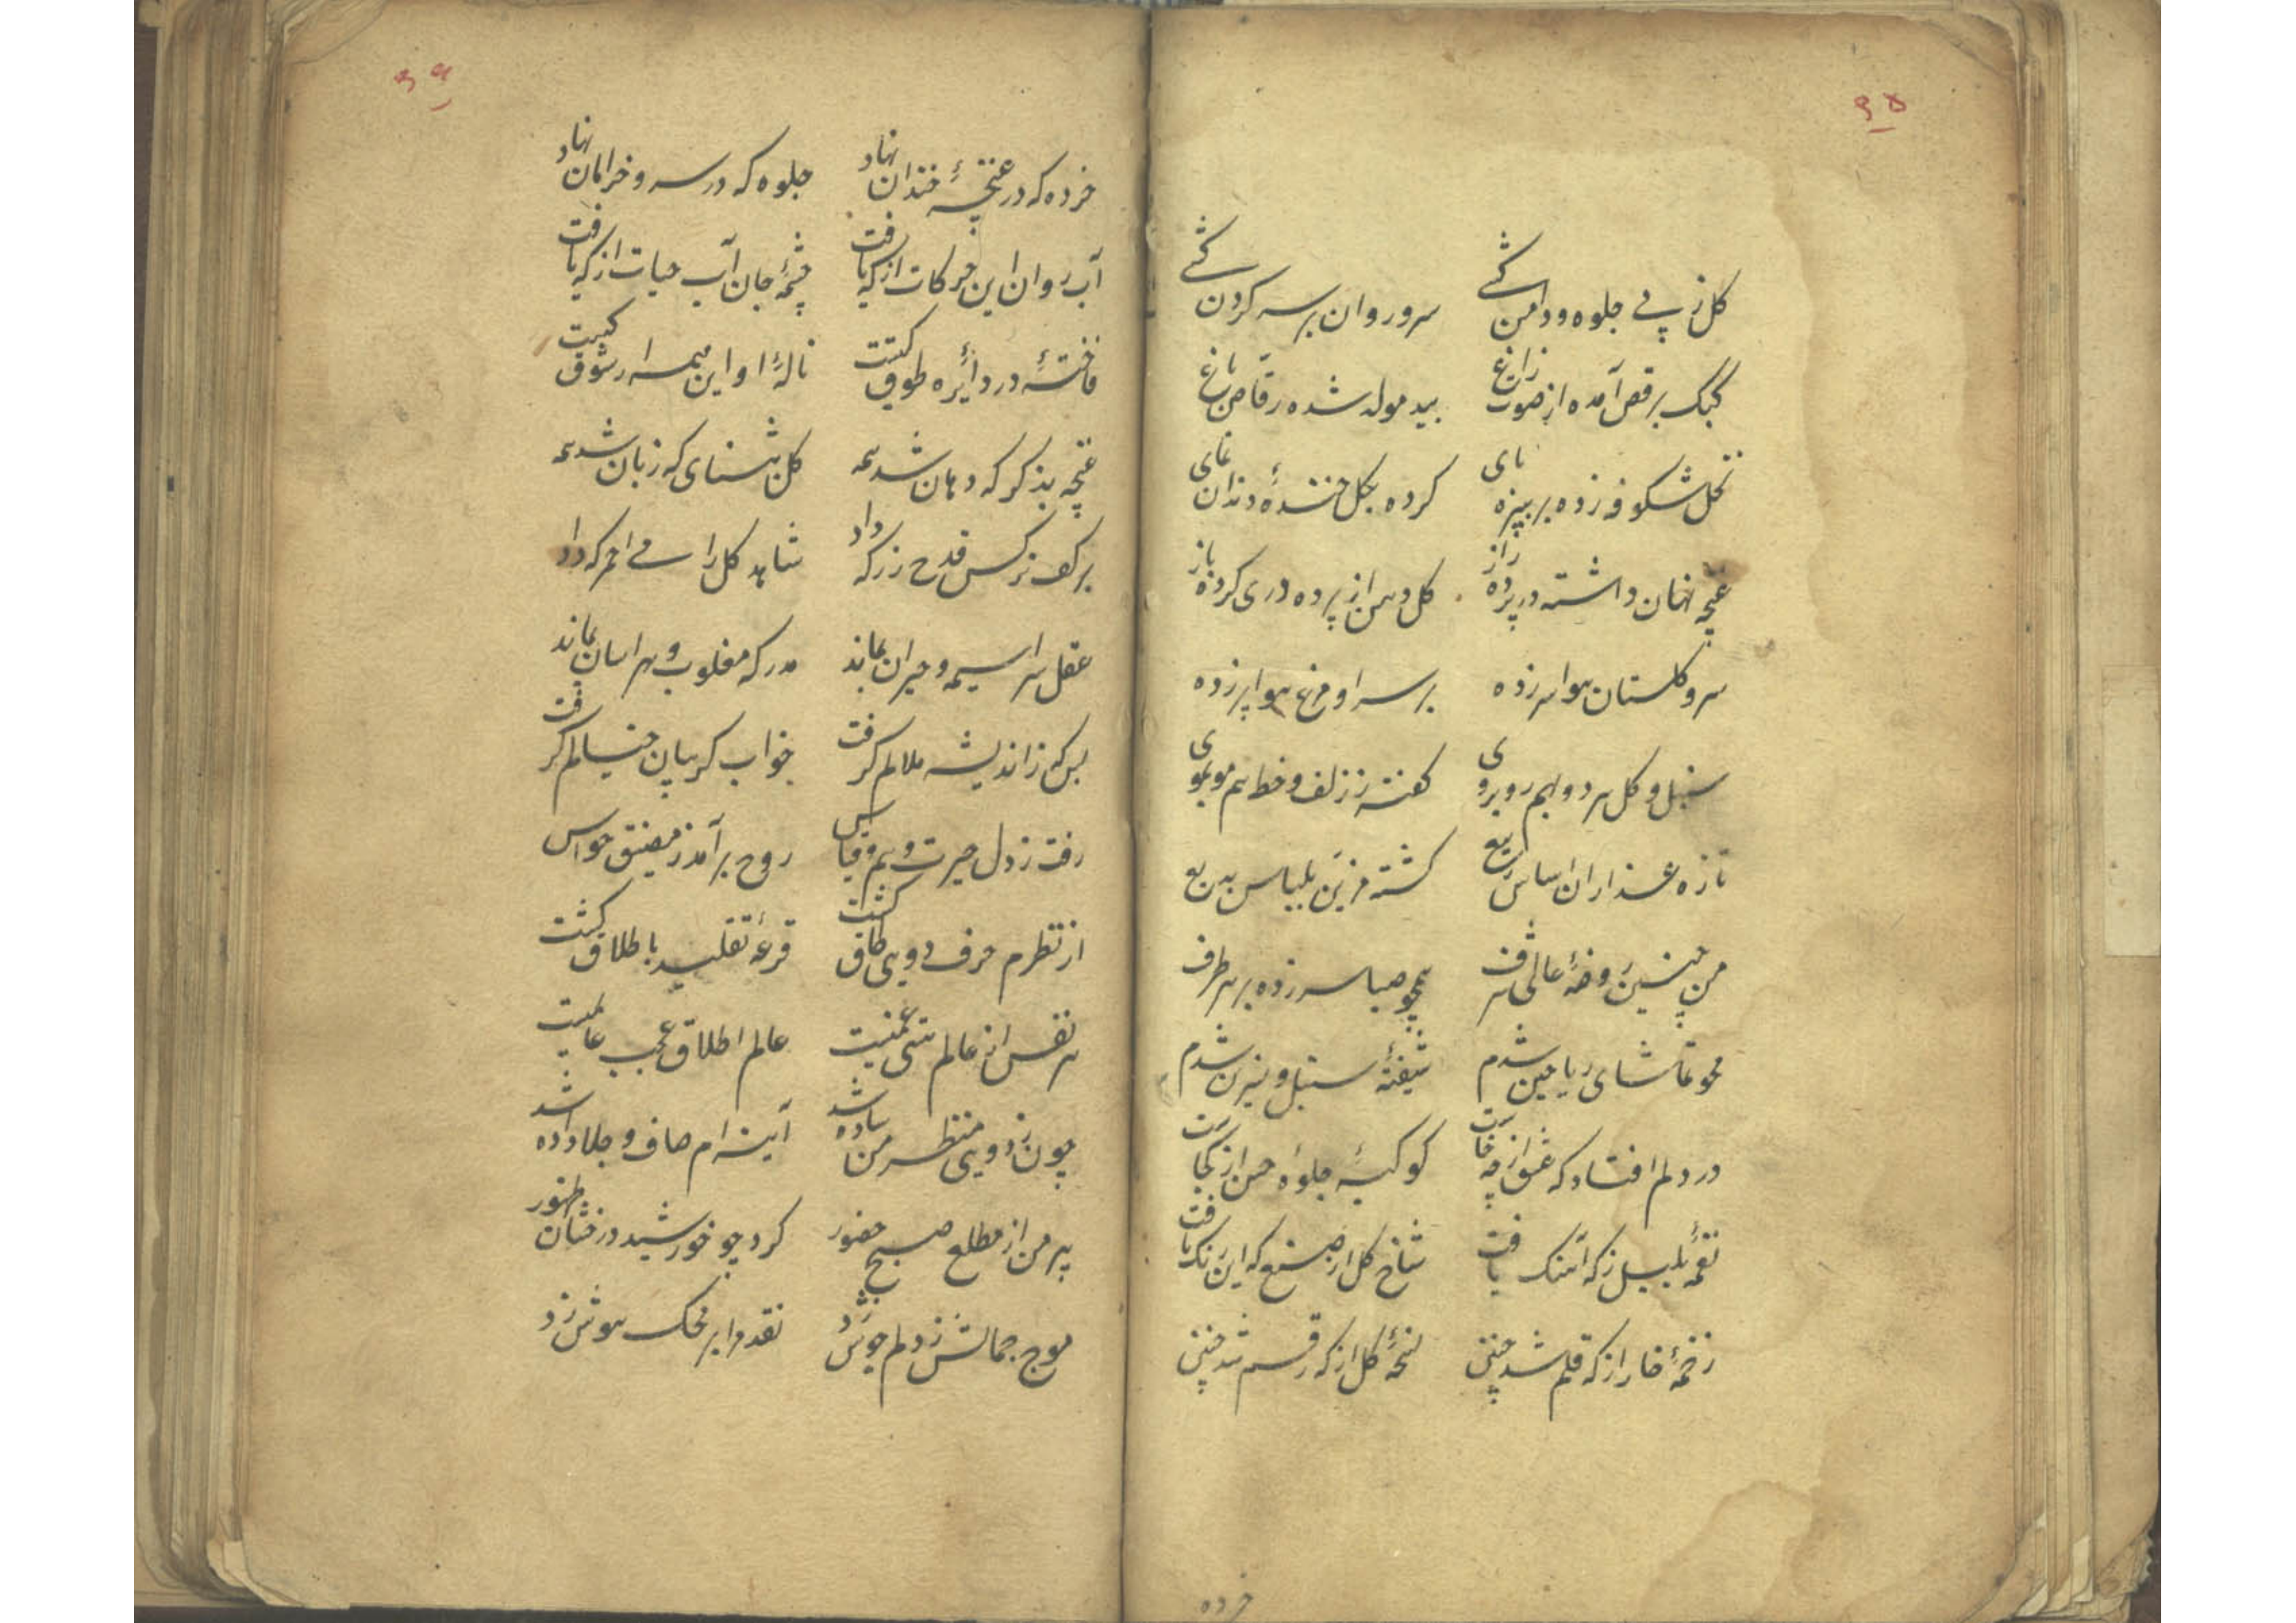 ۳۵
گل ز پی جلوه و دامن کشی سرو روان بر سر گردن کشی
کبک برقص آمده از صوت زاغ بید موله شده رقاص باغ
نخل شکوفه زده بر سبزه پای کرده بگل خندهٔ دندان نمای
غنچه نهان داشته در پرده راز گل دهن از پرده دری کرده باز
سرو گلستان بهوا سر زده بر سر او مرغ هوا پر زده
سنبل و گل هر دو بهم روبروی گفته ز زلف و خط هم موبموی
تازه عذاران اساس ربیع گشته مزین بلباس بدیع
من بچنین روضهٔ عالی شرف همچو صبا سر زده بر هر طرف
محو تماشای ریاحین شدم شیفتهٔ سنبل و نسرین شدم
در دلم افتاد که عشق از چه خاست کوکبهٔ جلوهٔ حسن از کجاست
نغمهٔ بلبل ز که آهنگ یافت شاخ گل از صنع که این رنگ یافت
زخمهٔ خار از که قلم شد چنین نسخهٔ گل از که رقم شد چنین
خرده
۳۶
خرده که در غنچهٔ خندان نهاد جلوه که در سرو خرامان نهاد
آب روان این حرکات از که یافت چشمهٔ جان آب حیات از که یافت
فاختهٔ در دائرهٔ طوق کیست نالهٔ او این همه از شوق کیست
غنچه بذکر که دهان شد همه گل بثنای که زبان شد همه
بر کف نرگس قدح زر که داد شاهد گل را می احمر که داد
عقل سراسیمه و حیران بماند مدرکه مغلوب و هراسان بماند
بس که ز اندیشه ملالم گرفت خواب گریبان خیالم گرفت
رفت ز دل حیرت و وهم و قیاس روح برآمد ز مضیق حواس
از نظرم حرف دویی طاق گشت قرعهٔ تقلید باطلاق گشت
هر نفس از عالم هستی غمیست عالم اطلاق عجب عالمیست
چون ز دویی منظر من ساده شد آینه‌ام صاف و جلا داده شد
پیر من از مطلع صبح حضور کرد چو خورشید درخشان ظهور
موج جمالش ز دلم جوش زد نقد مرا بر محک هوش زد